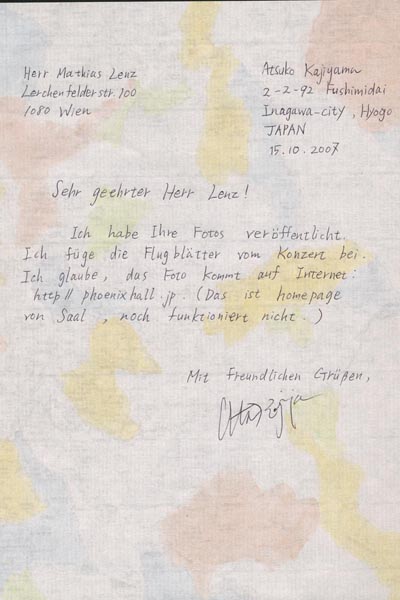 Herr Mathias Lenz
Lerchenfelderstr. 100
1080 Wien
Atsuko Kajiyama
2-2-92 Fushimidai
Inagawa-city, Hyogo
JAPAN
15.10.2007
Sehr geehrter Herr Lenz!
Ich habe Ihre Fotos veröffentlicht.
Ich füge die Flugblätter vom Konzert bei.
Ich glaube, das Foto kommt auf Internet:
http// phoenixhall.jp. (Das ist homepage
von Saal, noch funktioniert nicht.)
Mit freundlichen Grüßen,